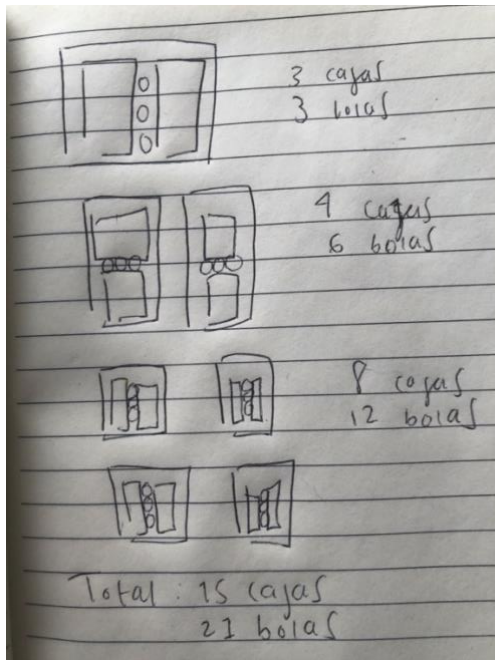 3 cajas
3 bolas
4 cajas
6 bolas
8 cajas
12 bolas
Total: 15 cajas
21 bolas